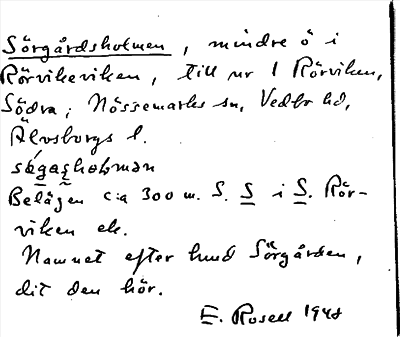 Sörgårdsholmen, mindre ö i
Rörvikeviken, till nr 1 Rörviken,
Södra; Nössemarks sn, Vedbo hd,
Älvsborgs l.
Belägen c:a 300 m. S. S i S. Rör-
viken ek.
Namnet efter hmd Sörgården,
dit den hör.
E. Rosell 1948